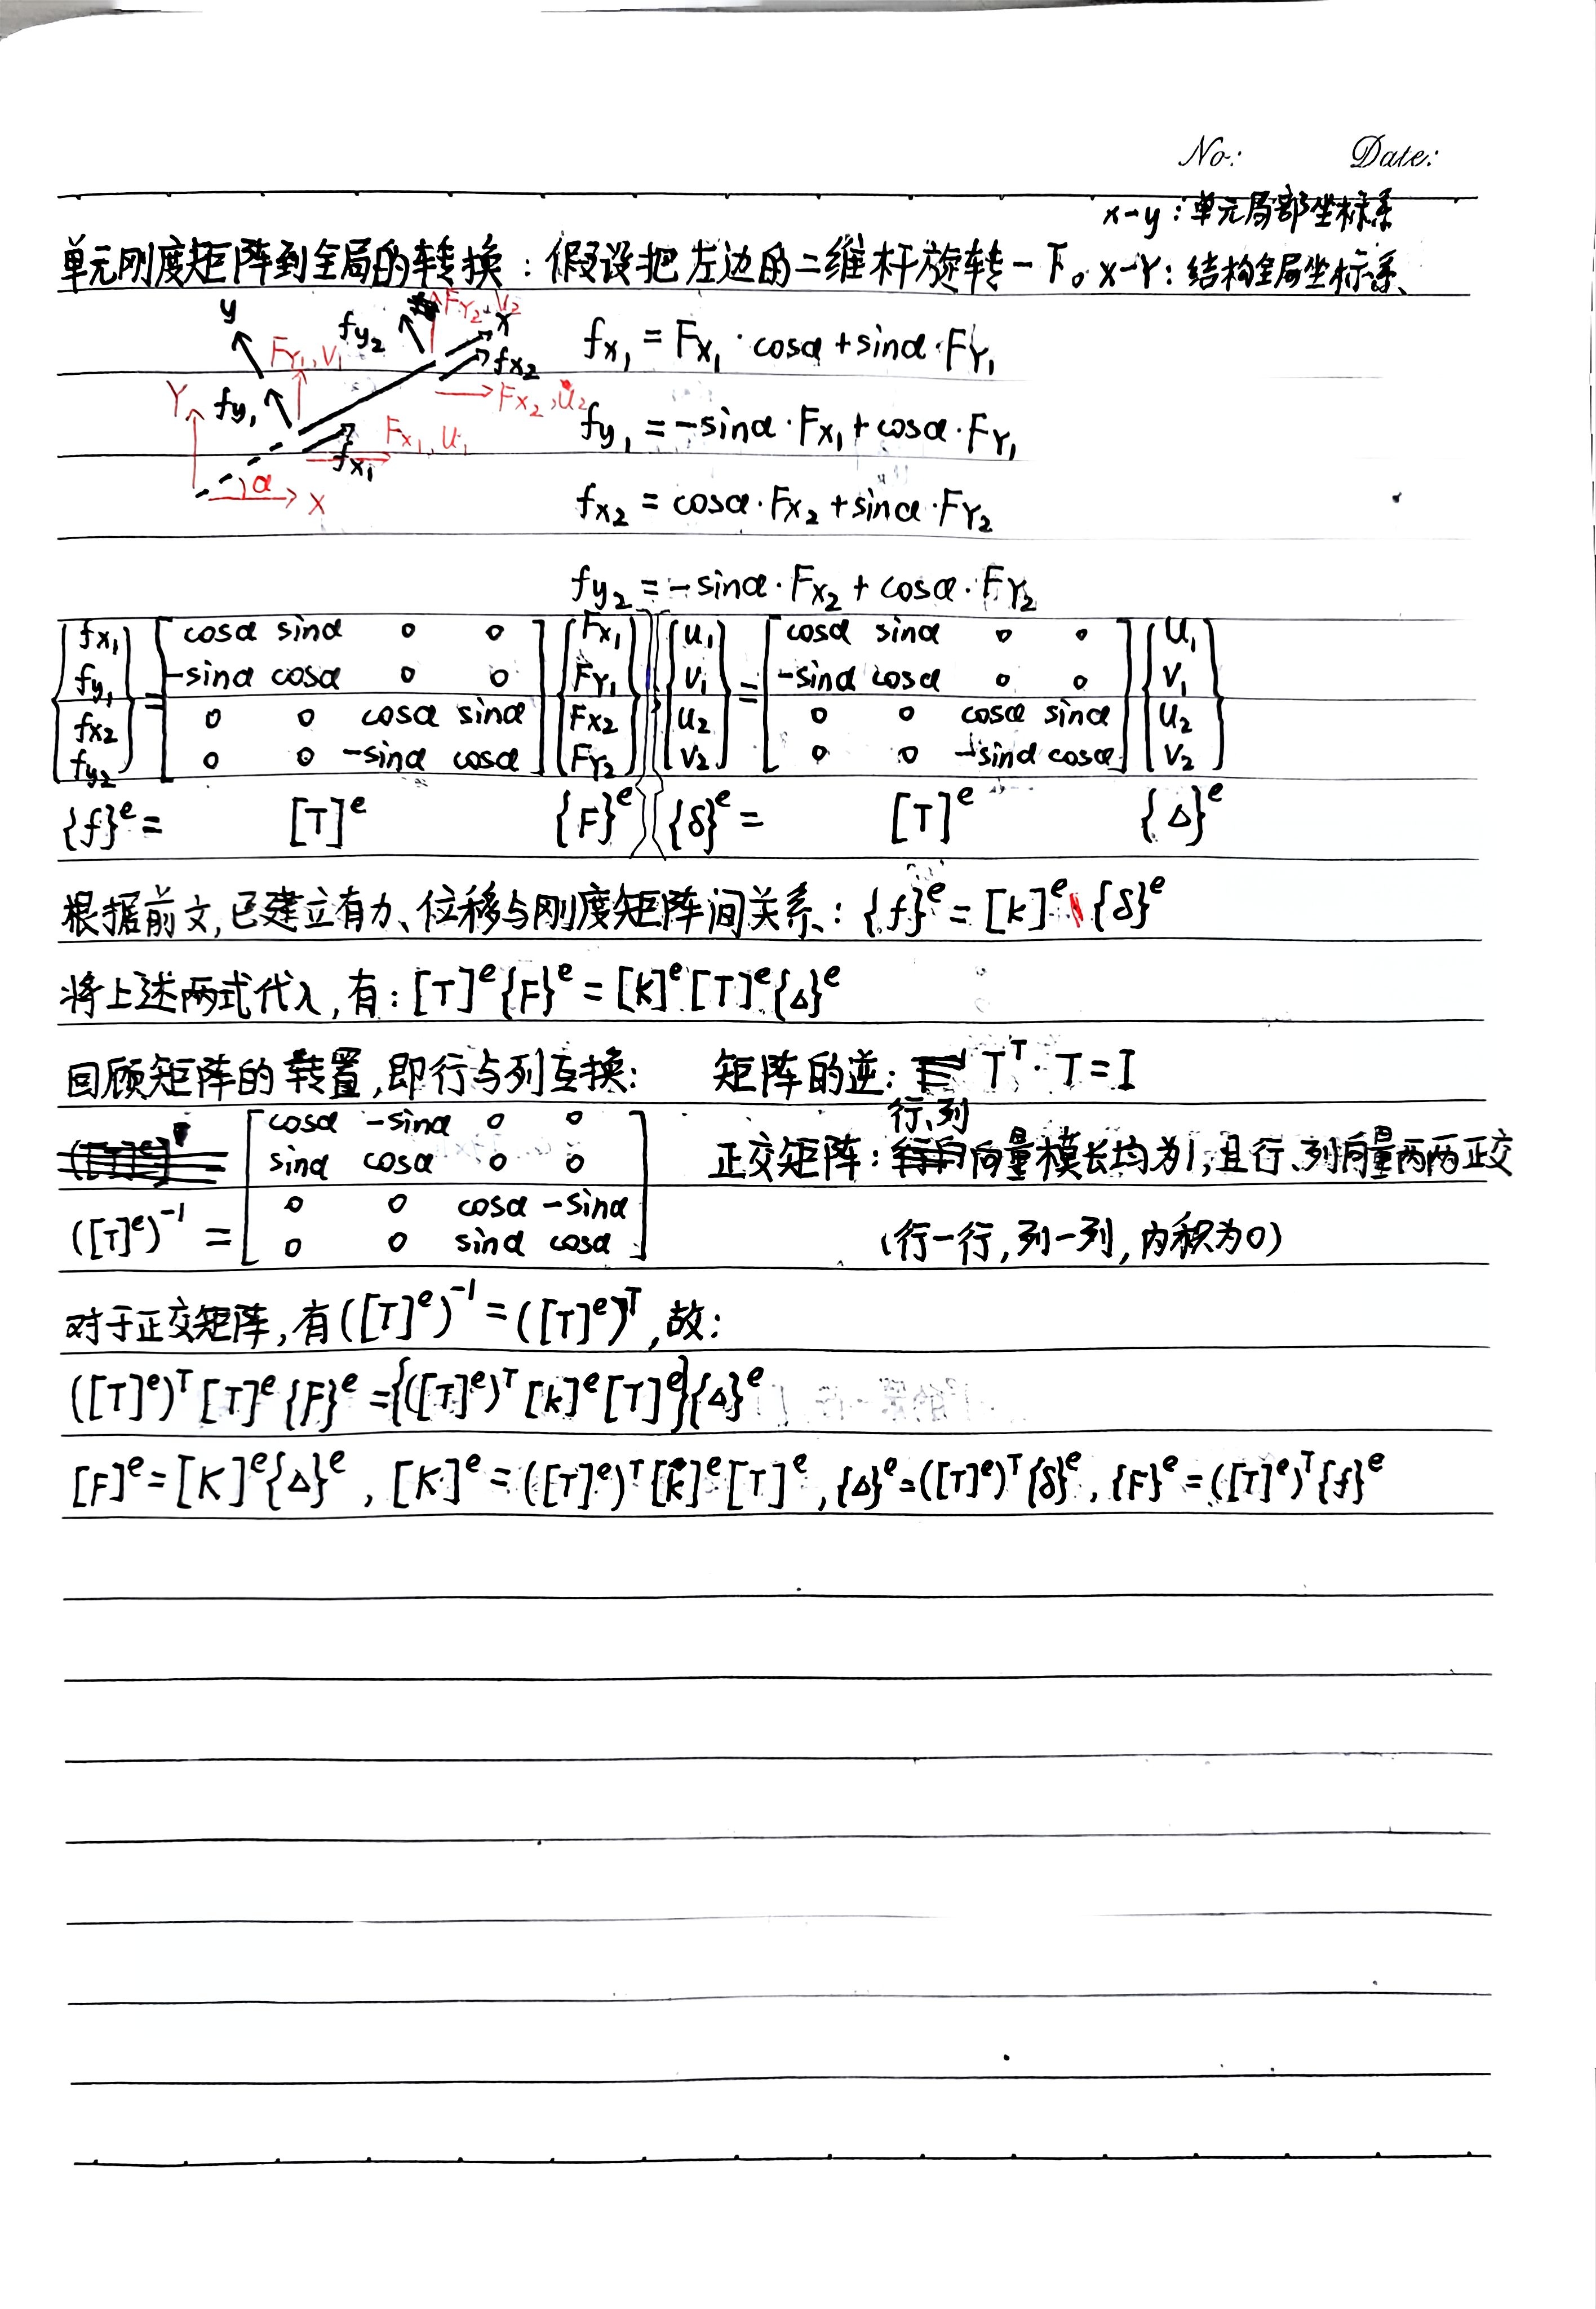 No: Date:
x-y:单元局部坐标系
单元刚度矩阵到全局的转换:假设把左边的二维杆旋转一下。X-Y:结构全局坐标系
y fy₂ F_Y₂, V₂ x
fx₂
F_Y₁, V₁
F_X₂, U₂
Y fy₁
F_X₁, U₁
fx₁
α X
fx₁ = F_X₁·cosα+sinα·F_Y₁
fy₁ = -sinα·F_X₁+cosα·F_Y₁
fx₂ = cosα·F_X₂+sinα·F_Y₂
fy₂ = -sinα·F_X₂+cosα·F_Y₂
fx₁ cosα sinα 0 0 F_X₁ u₁ cosα sinα 0 0 U₁
fy₁ = -sinα cosα 0 0 F_Y₁ v₁ = -sinα cosα 0 0 V₁
fx₂ 0 0 cosα sinα F_X₂ u₂ 0 0 cosα sinα U₂
fy₂ 0 0 -sinα cosα F_Y₂ v₂ 0 0 -sinα cosα V₂
{f}ᵉ = [T]ᵉ {F}ᵉ {δ}ᵉ = [T]ᵉ {Δ}ᵉ
根据前文,已建立有力、位移与刚度矩阵间关系:{f}ᵉ = [k]ᵉ {δ}ᵉ
将上述两式代入,有:[T]ᵉ{F}ᵉ = [k]ᵉ[T]ᵉ{Δ}ᵉ
回顾矩阵的转置,即行与列互换: 矩阵的逆:Tᵀ·T=I
cosα -sinα 0 0
sinα cosα 0 0
([T]ᵉ)⁻¹ = 0 0 cosα -sinα
0 0 sinα cosα
正交矩阵:行、列向量模长均为1,且行、列向量两两正交
(行一行,列一列,内积为0)
对于正交矩阵,有([T]ᵉ)⁻¹ = ([T]ᵉ)ᵀ,故:
([T]ᵉ)ᵀ[T]ᵉ{F}ᵉ = {([T]ᵉ)ᵀ[k]ᵉ[T]ᵉ}{Δ}ᵉ
[F]ᵉ = [K]ᵉ{Δ}ᵉ, [K]ᵉ = ([T]ᵉ)ᵀ[k]ᵉ[T]ᵉ, {Δ}ᵉ = ([T]ᵉ)ᵀ{δ}ᵉ, {F}ᵉ = ([T]ᵉ)ᵀ{f}ᵉ